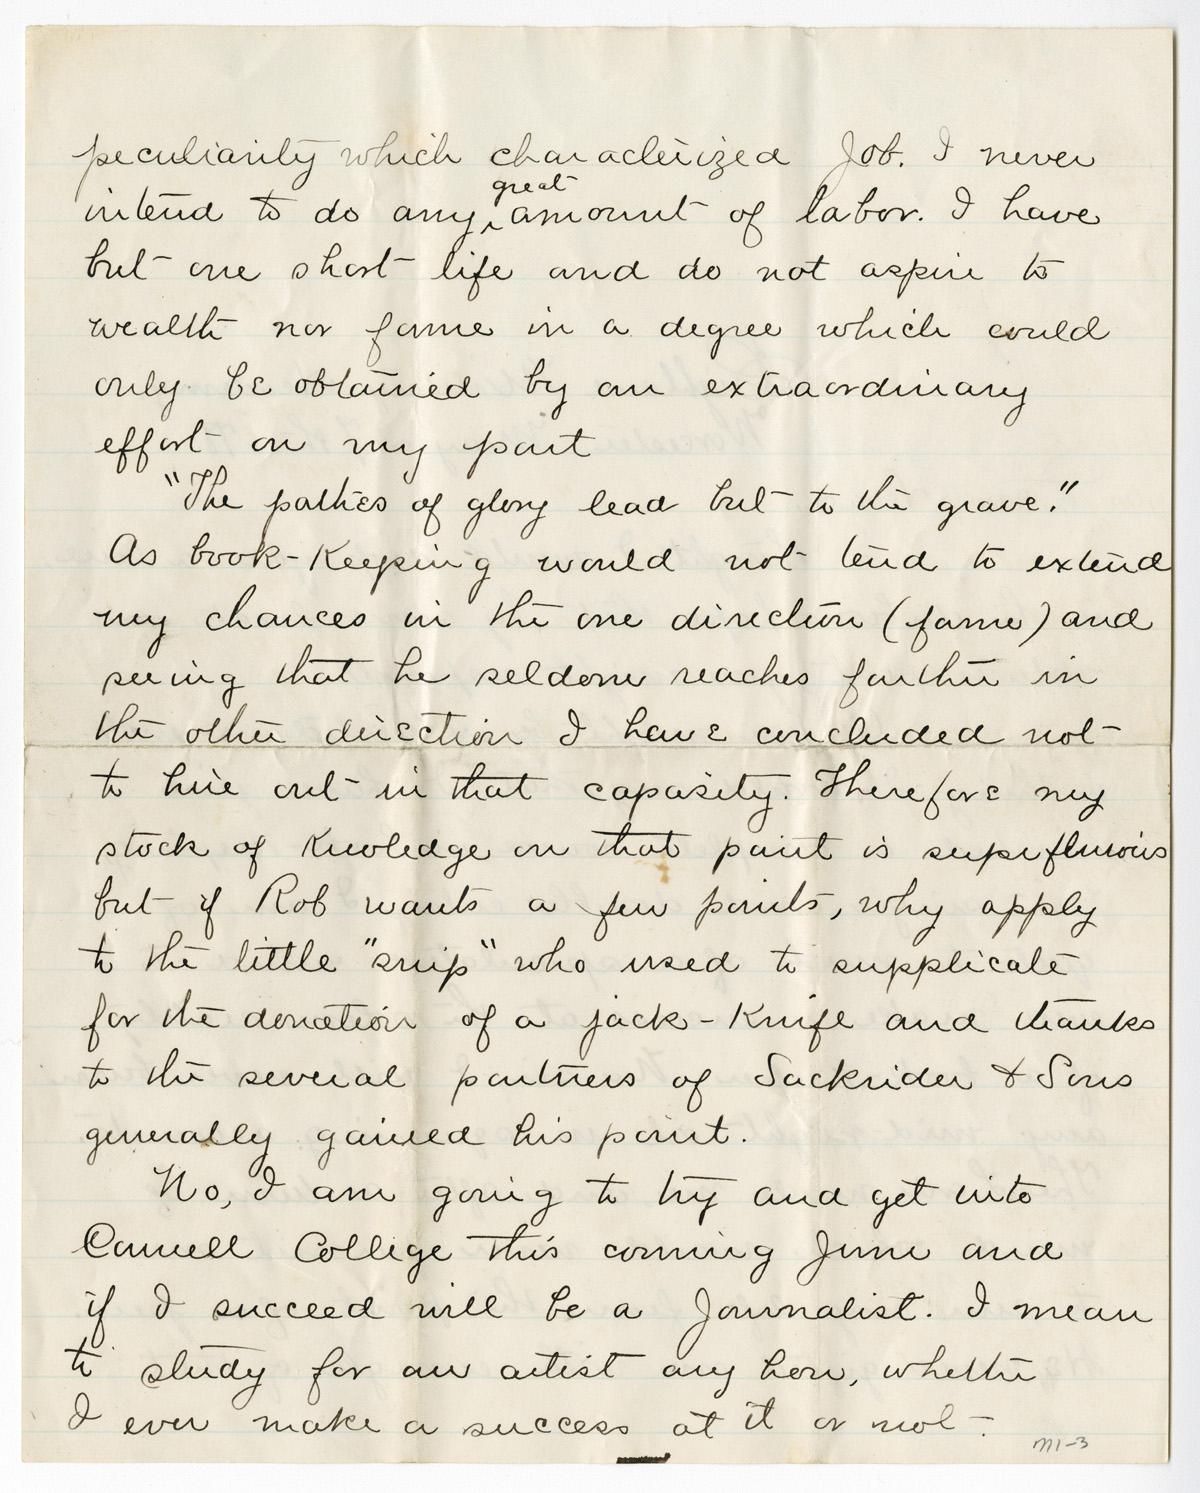 peculiarity which characterized Job. I never
great
intend to do any ‸ amount of labor. I have
but one short life and do not aspire to
wealth nor fame in a degree which could
only be obtained by an extraordinary
effort on my part
"The pathes of glory lead but to the grave."
As book-Keeping would not tend to extend
my chances in the one direction (fame) and
seeing that he seldom reaches farther in
the other direction I have concluded not
to hire out in that capasity. Therefore my
stock of Knowledge on that point is superfluous
but if Rob wants a few points, why apply
to the little "snip" who used to supplicate
for the donation of a jack-Knife and thanks
to the several partners of Sackrider & Sons
generally gained his point.
No, I am going to try and get into
Cornell College this coming June and
if I succeed will be a Journalist. I mean
to study for an artist any how, whether
I ever make a success at it or not-
M1-3